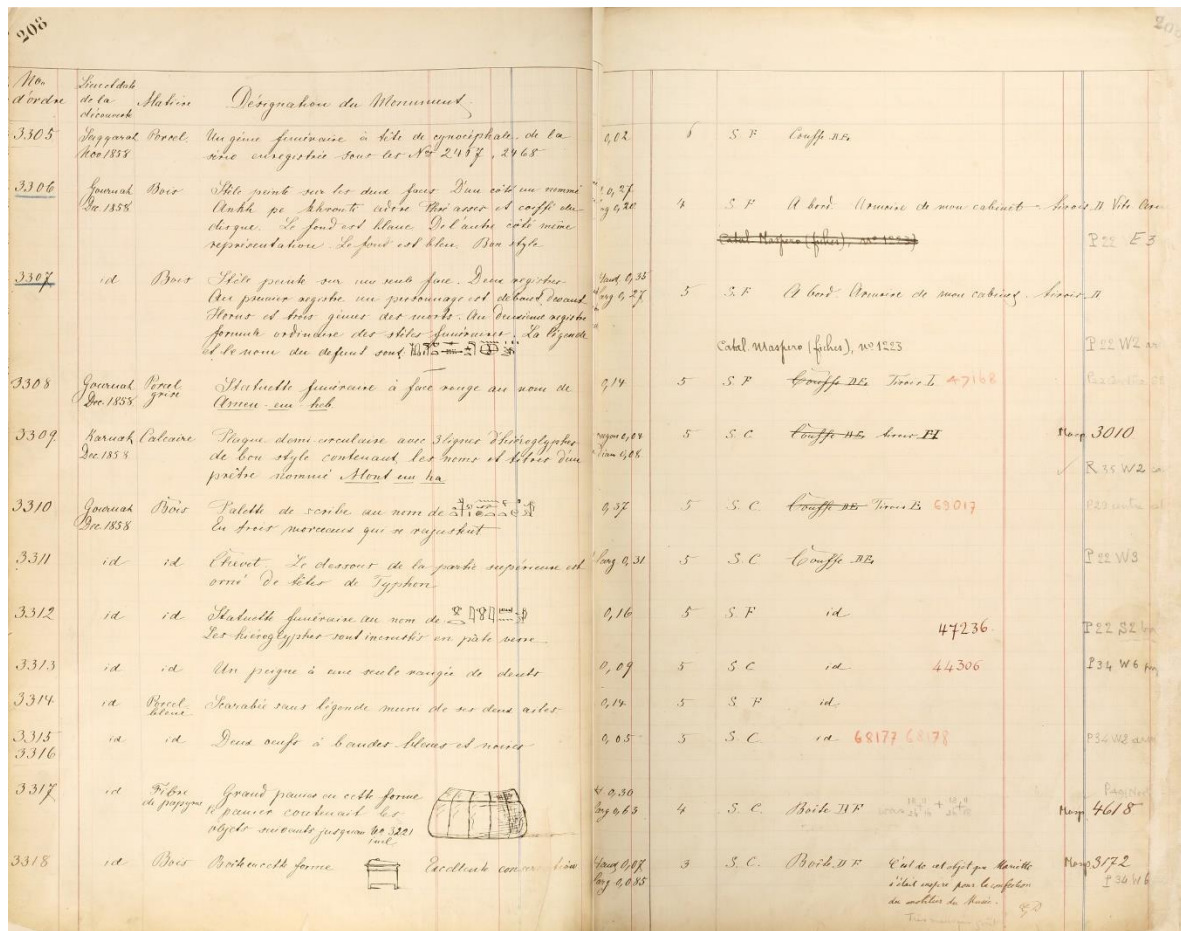 208
Nos d'ordre
Lieu et date de la découverte
Matière
Désignation du Monument
3305 Saqqarah Nov 1858 Porcel. Un génie funéraire à tête de cynocéphale de la
série enregistrée sous les Nos 2457, 2468 0,02 6 S. F Couffe
3306 Gournah Dec. 1858 Bois Stèle peinte sur les deux faces. D'un côté un nommé
Ankh pe khrouti adore Phré assis et coiffé du
disque. Le fond est blanc. De l'autre côté même
représentation. Le fond est bleu. Bon style 0,27 0,20 4 S. F A bord. Armoire de mon cabinet - tiroir II
Catal. Maspero (fiches), nº 1223 P 22 E 3
3307 id Bois Stèle peinte sur une seule face. Deux registres
Au premier registre un personnage est debout devant
Horus et trois génies des morts. Au deuxième registre
formule ordinaire des stèles funéraires. La légende
et le nom du défunt sont haut 0,35 larg 0,27 5 S. F A bord. Armoire de mon cabinet. tiroir II
Catal. Maspero (fiches), nº 1223 P 22 W2
3308 Gournah Dec. 1858 Porcel grise Statuette funéraire à face rouge au nom de
Amen-em-heb 0,14 5 S. F Couffe Tiroir 47168
3309 Karnak Dec. 1858 Calcaire Plaque demi-circulaire avec 3 lignes d'hiéroglyphes
de bon style contenant les noms et titres d'un
prêtre nommé Mont em ha 0,08 5 S. C. Couffe tiroir Masp. 3010
R 35 W2
3310 Gournah Dec. 1858 Bois Palette de scribe au nom de
En trois morceaux qui se rajustent 0,37 5 S. C. Couffe Tiroir 69017
3311 id id Chevet. Le dessous de la partie supérieure est
orné de têtes de Typhon larg. 0,31 5 S. C. Couffe P22 W3
3312 id id Statuette funéraire au nom de
Les hiéroglyphes sont incrustés en pâte verre 0,16 5 S. F id 47236 P22 S2
3313 id id Un peigne à une seule rangée de dents 0,09 5 S. C id 44306 P34 W6
3314 id Porcel. bleue Scarabée sans légende muni de ses deux ailes 0,14 5 S. F id
3315
3316 id id Deux oeufs à bandes bleues et noires 0,05 5 S. C. id 68177 68178 P34 W2
3317 id Fibre de papyrus Grand panier en cette forme
le panier contenait les
objets suivants jusqu'au No 3221
incl. 0,30 larg 0,63 4 S. C. Boîte II F Masp. 4618
3318 id Bois Boîte en cette forme Excellente conservation haut 0,07 larg. 0,085 3 S. C. Boîte II F
C'est de cet objet que Mariette
s'était inspiré pour la confection
du mobilier du Musée. G D
Masp 3172
P 34 W6